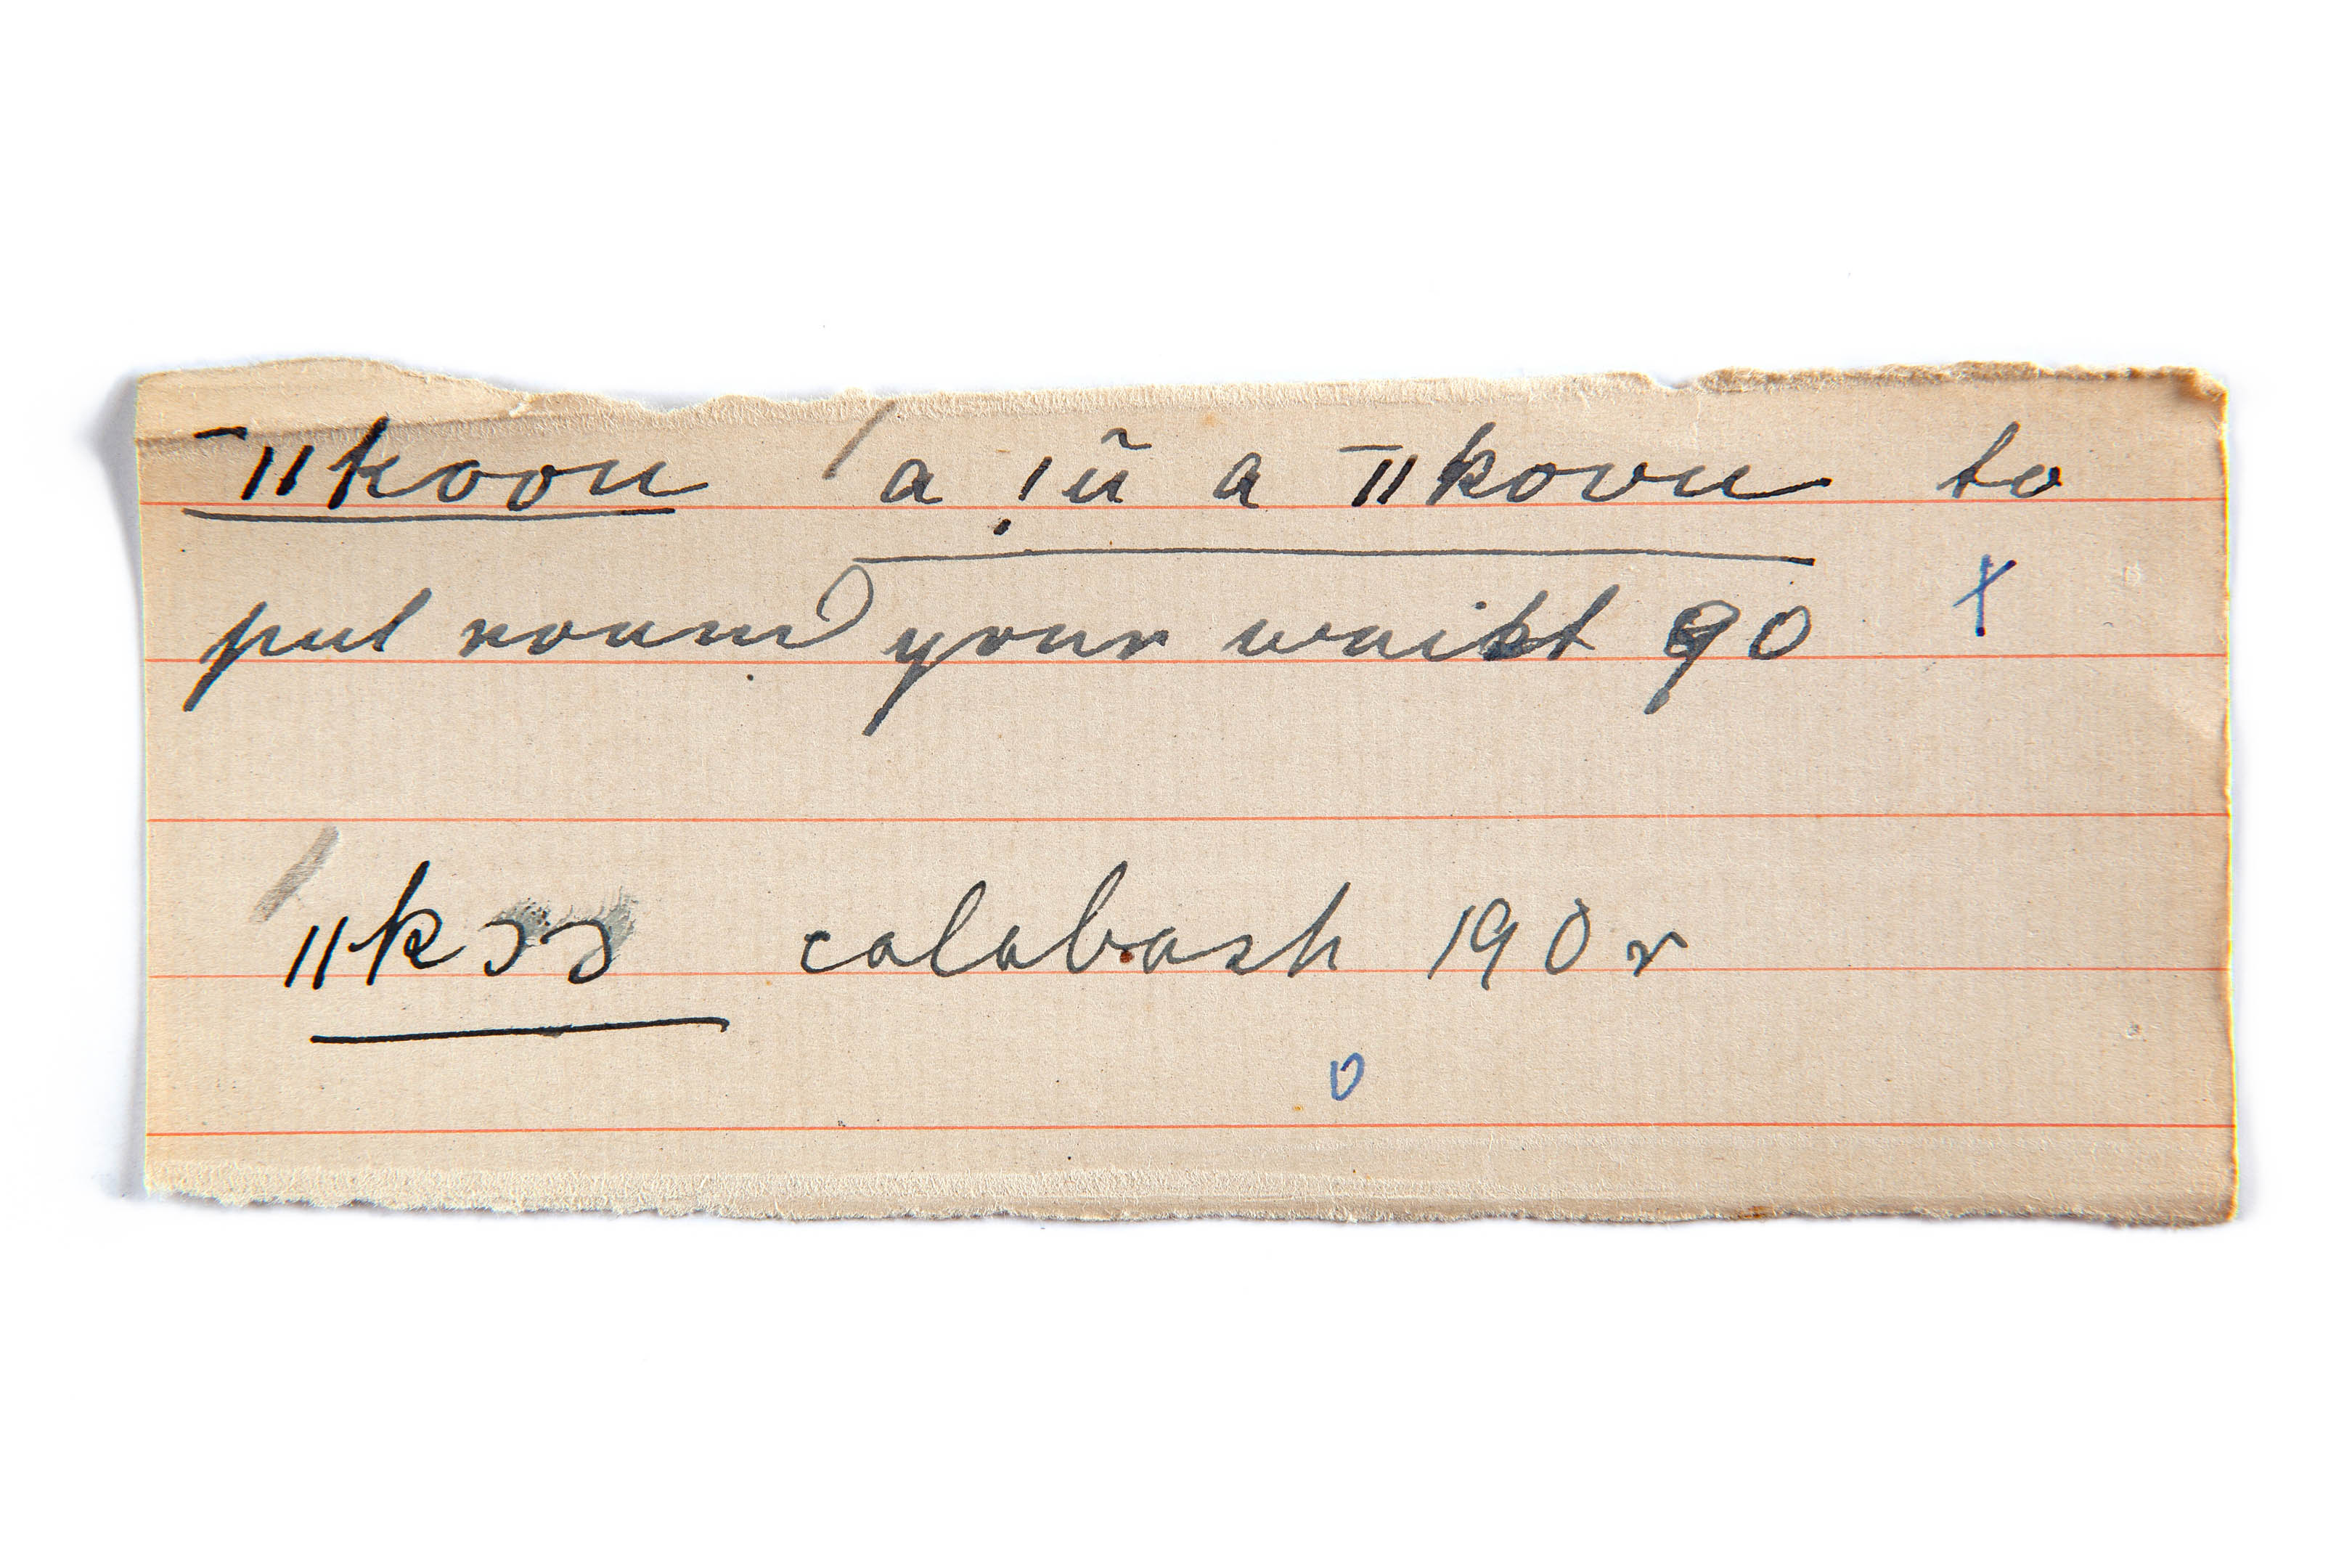 ‾ǁkoou a !ū a ‾ǁkoou to
put round your waist 90 x
ǁkɔɔ calabash 190 r
0